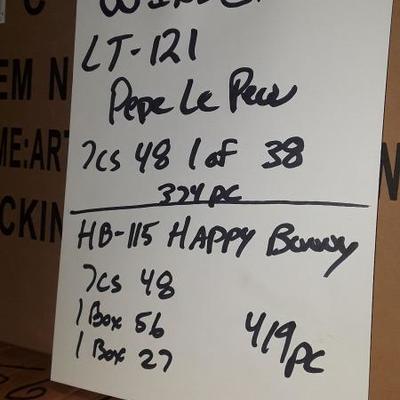 C
LT-121
EM N
Pepe Le Pew
ME:ART
7cs 48 1 of 38
374 PC
N
CKIN
HB-115 HAPPY Bunny
7cs 48
1 Box 56
419 PC
1 Box 27